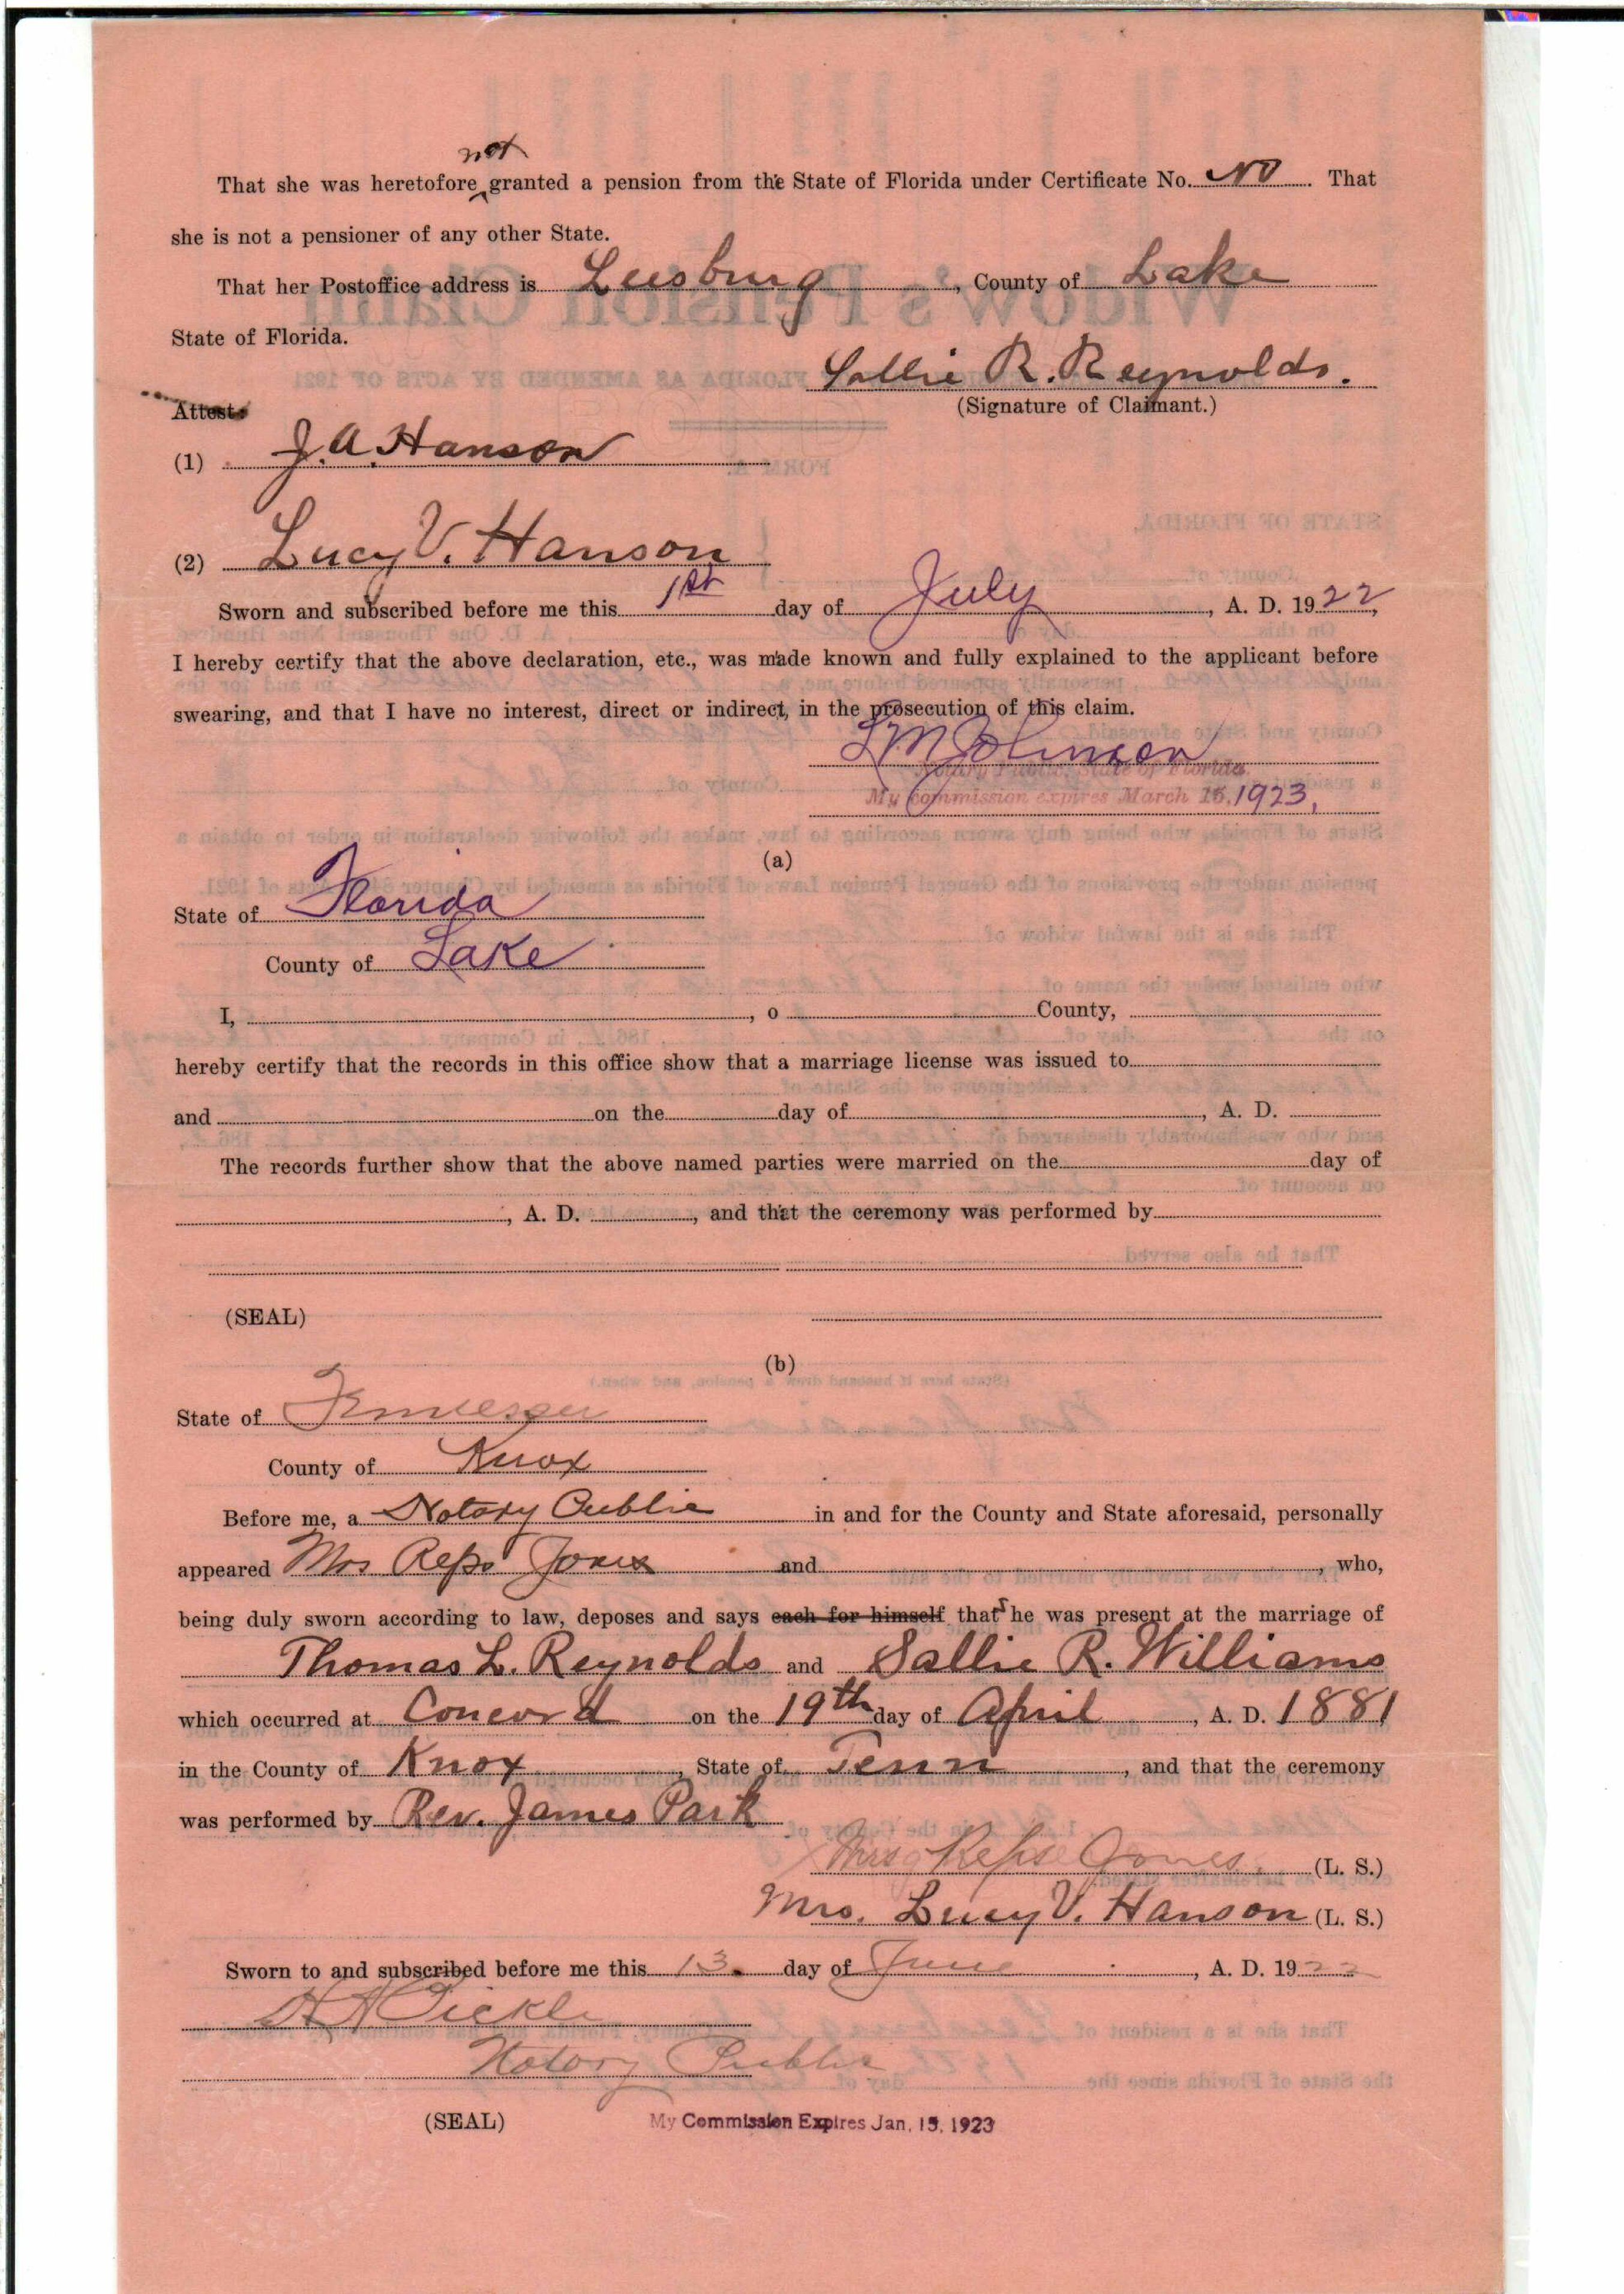 not
That she was heretofore ‸ granted a pension from the State of Florida under Certificate No. NO. That
she is not a pensioner of any other State.
That her Postoffice address is Leesburg, County of Lake
State of Florida.
Sallie R. Reynolds.
Attest:
(Signature of Claimant.)
(1) J. A. Hanson
(2) Lucy V. Hanson
Sworn and subscribed before me this 1st day of July, A. D. 1922,
I hereby certify that the above declaration, etc., was made known and fully explained to the applicant before
swearing, and that I have no interest, direct or indirect, in the prosecution of this claim.
L M Johnson
Notary Public, State of Florida.
My commission expires March 15, 1923,
(a)
State of Florida
County of Lake
I, , o County,
hereby certify that the records in this office show that a marriage license was issued to
and on the day of , A. D.
The records further show that the above named parties were married on the day of
, A. D. , and that the ceremony was performed by
(SEAL)
(b)
State of Tennessee
County of Knox
Before me, a Notary Public in and for the County and State aforesaid, personally
appeared Mrs Reps Jones and , who,
being duly sworn according to law, deposes and says each for himself that s he was present at the marriage of
Thomas L. Reynolds and Sallie R. Williams
which occurred at Concord on the 19th day of April, A. D. 1881
in the County of Knox, State of Tenn, and that the ceremony
was performed by Rev. James Park
Mrs Reps Jones. (L. S.)
Mrs. Lucy V. Hanson (L. S.)
Sworn to and subscribed before me this 13. day of June, A. D. 1922
Pickle
Notary Public
(SEAL) My Commission Expires Jan. 15, 1923